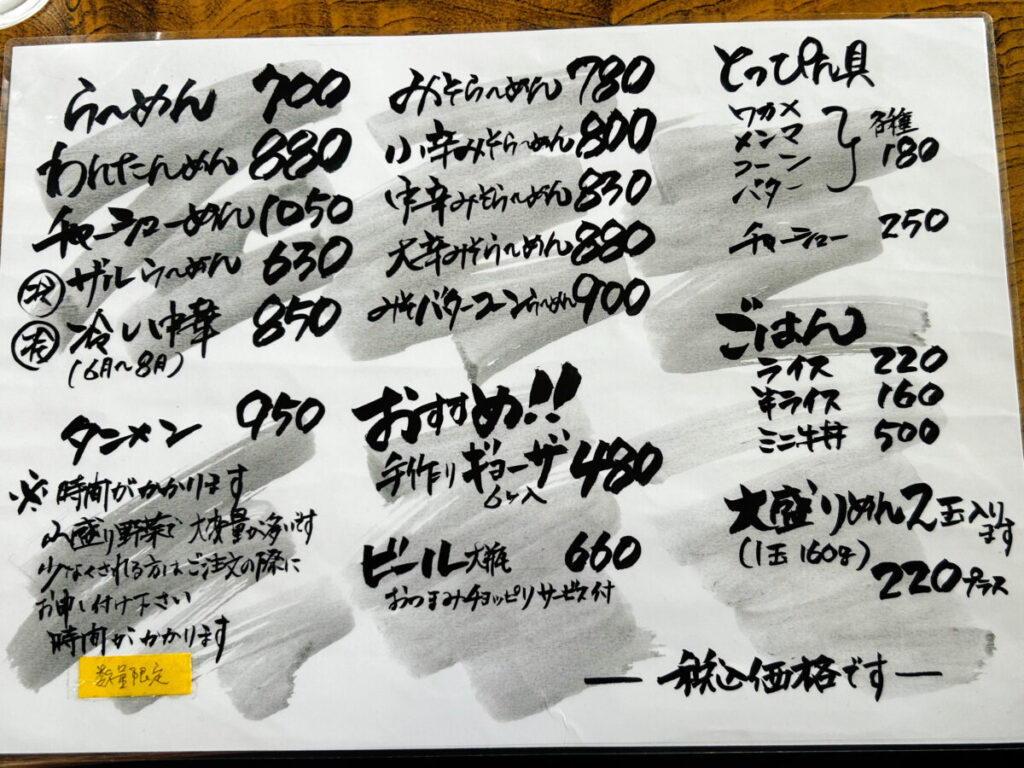 らーめん 700
わんたんめん 880
チャーシューめん 1050
ザルらーめん 630
冷し中華 850
(6月〜8月)
タンメン 950
※時間がかかります
山盛り野菜で大変量が多いです
少なくされる方はご注文の際に
お申し付け下さい
時間がかかります
数量限定
みそらーめん 780
小辛みそらーめん 800
中辛みそらーめん 830
大辛みそらーめん 880
みそバターコーンらーめん 900
おすすめ!!
手作りギョーザ 480
6ヶ入
ビール 大瓶 660
おつまみチョッピリサービス付
とっぴん具
ワカメ
メンマ
コーン
バター
各種
180
チャーシュー 250
ごはん
ライス 220
半ライス 160
ミニ牛丼 500
大盛りめん2玉入ります
(1玉160g)
220プラス
― 税込価格です ―